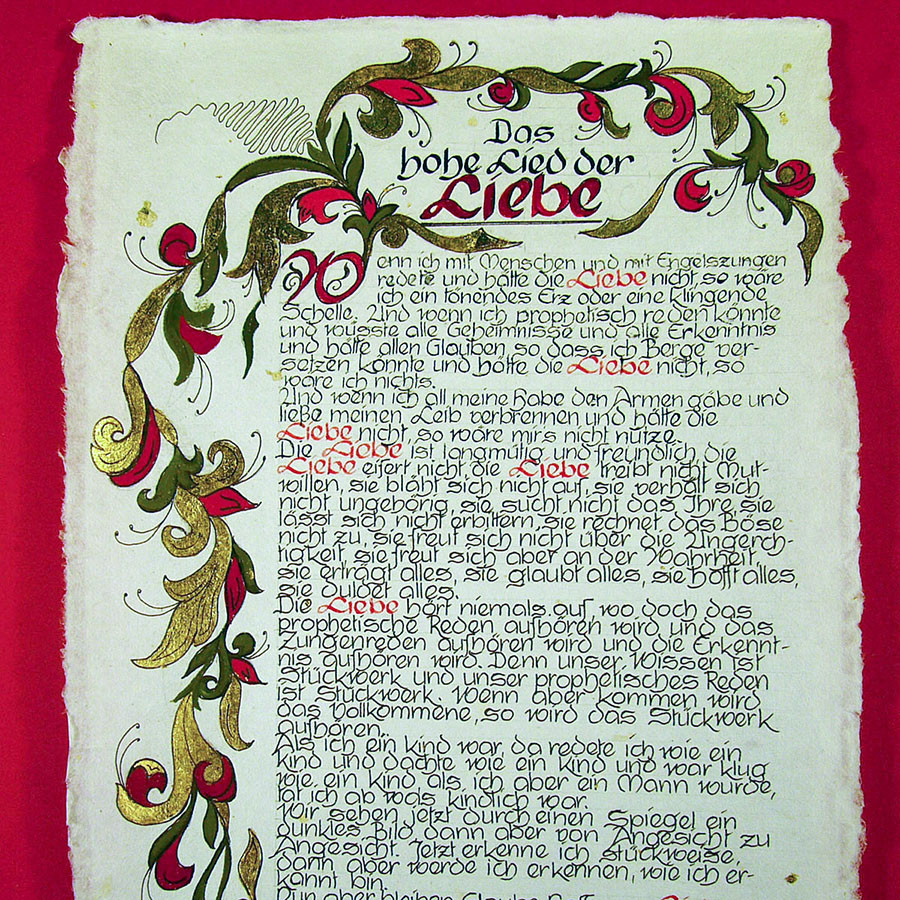 Das
hohe Lied der
Liebe
Wenn ich mit Menschen und mit Engelszungen
redete und hätte die Liebe nicht, so wäre
ich ein tönendes Erz oder eine klingende
Schelle. Und wenn ich prophetisch reden könnte
und wüsste alle Geheimnisse und alle Erkenntnis
und hätte allen Glauben, so dass ich Berge ver-
setzen könnte und hätte die Liebe nicht, so
wäre ich nichts.
Und wenn ich all meine Habe den Armen gäbe und
ließe meinen Leib verbrennen und hätte die
Liebe nicht, so wäre mirs nicht nütze.
Die Liebe ist langmütig und freundlich, die
Liebe eifert nicht, die Liebe treibt nicht Mut-
willen, sie bläht sich nicht auf, sie verhält sich
nicht ungehörig, sie sucht nicht das Ihre, sie
lässt sich nicht erbittern, sie rechnet das Böse
nicht zu, sie freut sich nicht über die Ungerch-
tigkeit, sie freut sich aber an der Wahrheit,
sie erträgt alles, sie glaubt alles, sie hofft alles,
sie duldet alles.
Die Liebe hört niemals auf, wo doch das
prophetische Reden aufhören wird und das
Zungenreden aufhören wird und die Erkennt-
nis aufhören wird. Denn unser Wissen ist
Stückwerk und unser prophetisches Reden
ist Stückwerk. Wenn aber kommen wird
das Vollkommene, so wird das Stückwerk
aufhören.
Als ich ein kind war, da redete ich wie ein
kind und dachte wie ein kind und war klug
wie ein kind, als ich aber ein Mann wurde,
tat ich ab was kindlich war.
Wir sehen jetzt durch einen Spiegel ein
dunkles Bild, dann aber von Angesicht zu
Angesicht. Jetzt erkenne ich stückweise,
dann aber werde ich erkennen, wie ich er-
kannt bin.
Nun aber bleiben Glaube